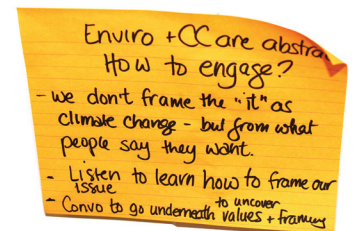 Enviro + CC are abstra
How to engage?
- we don't frame the "it" as
climate change - but from what
people say they want.
- Listen to learn how to frame our
issue
to uncover
- Convo to go underneath values + framing